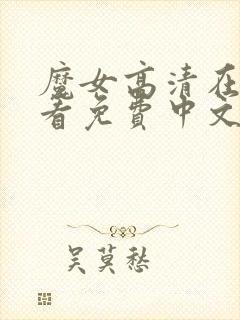 魔女高清在
看免费中文
吴莫愁